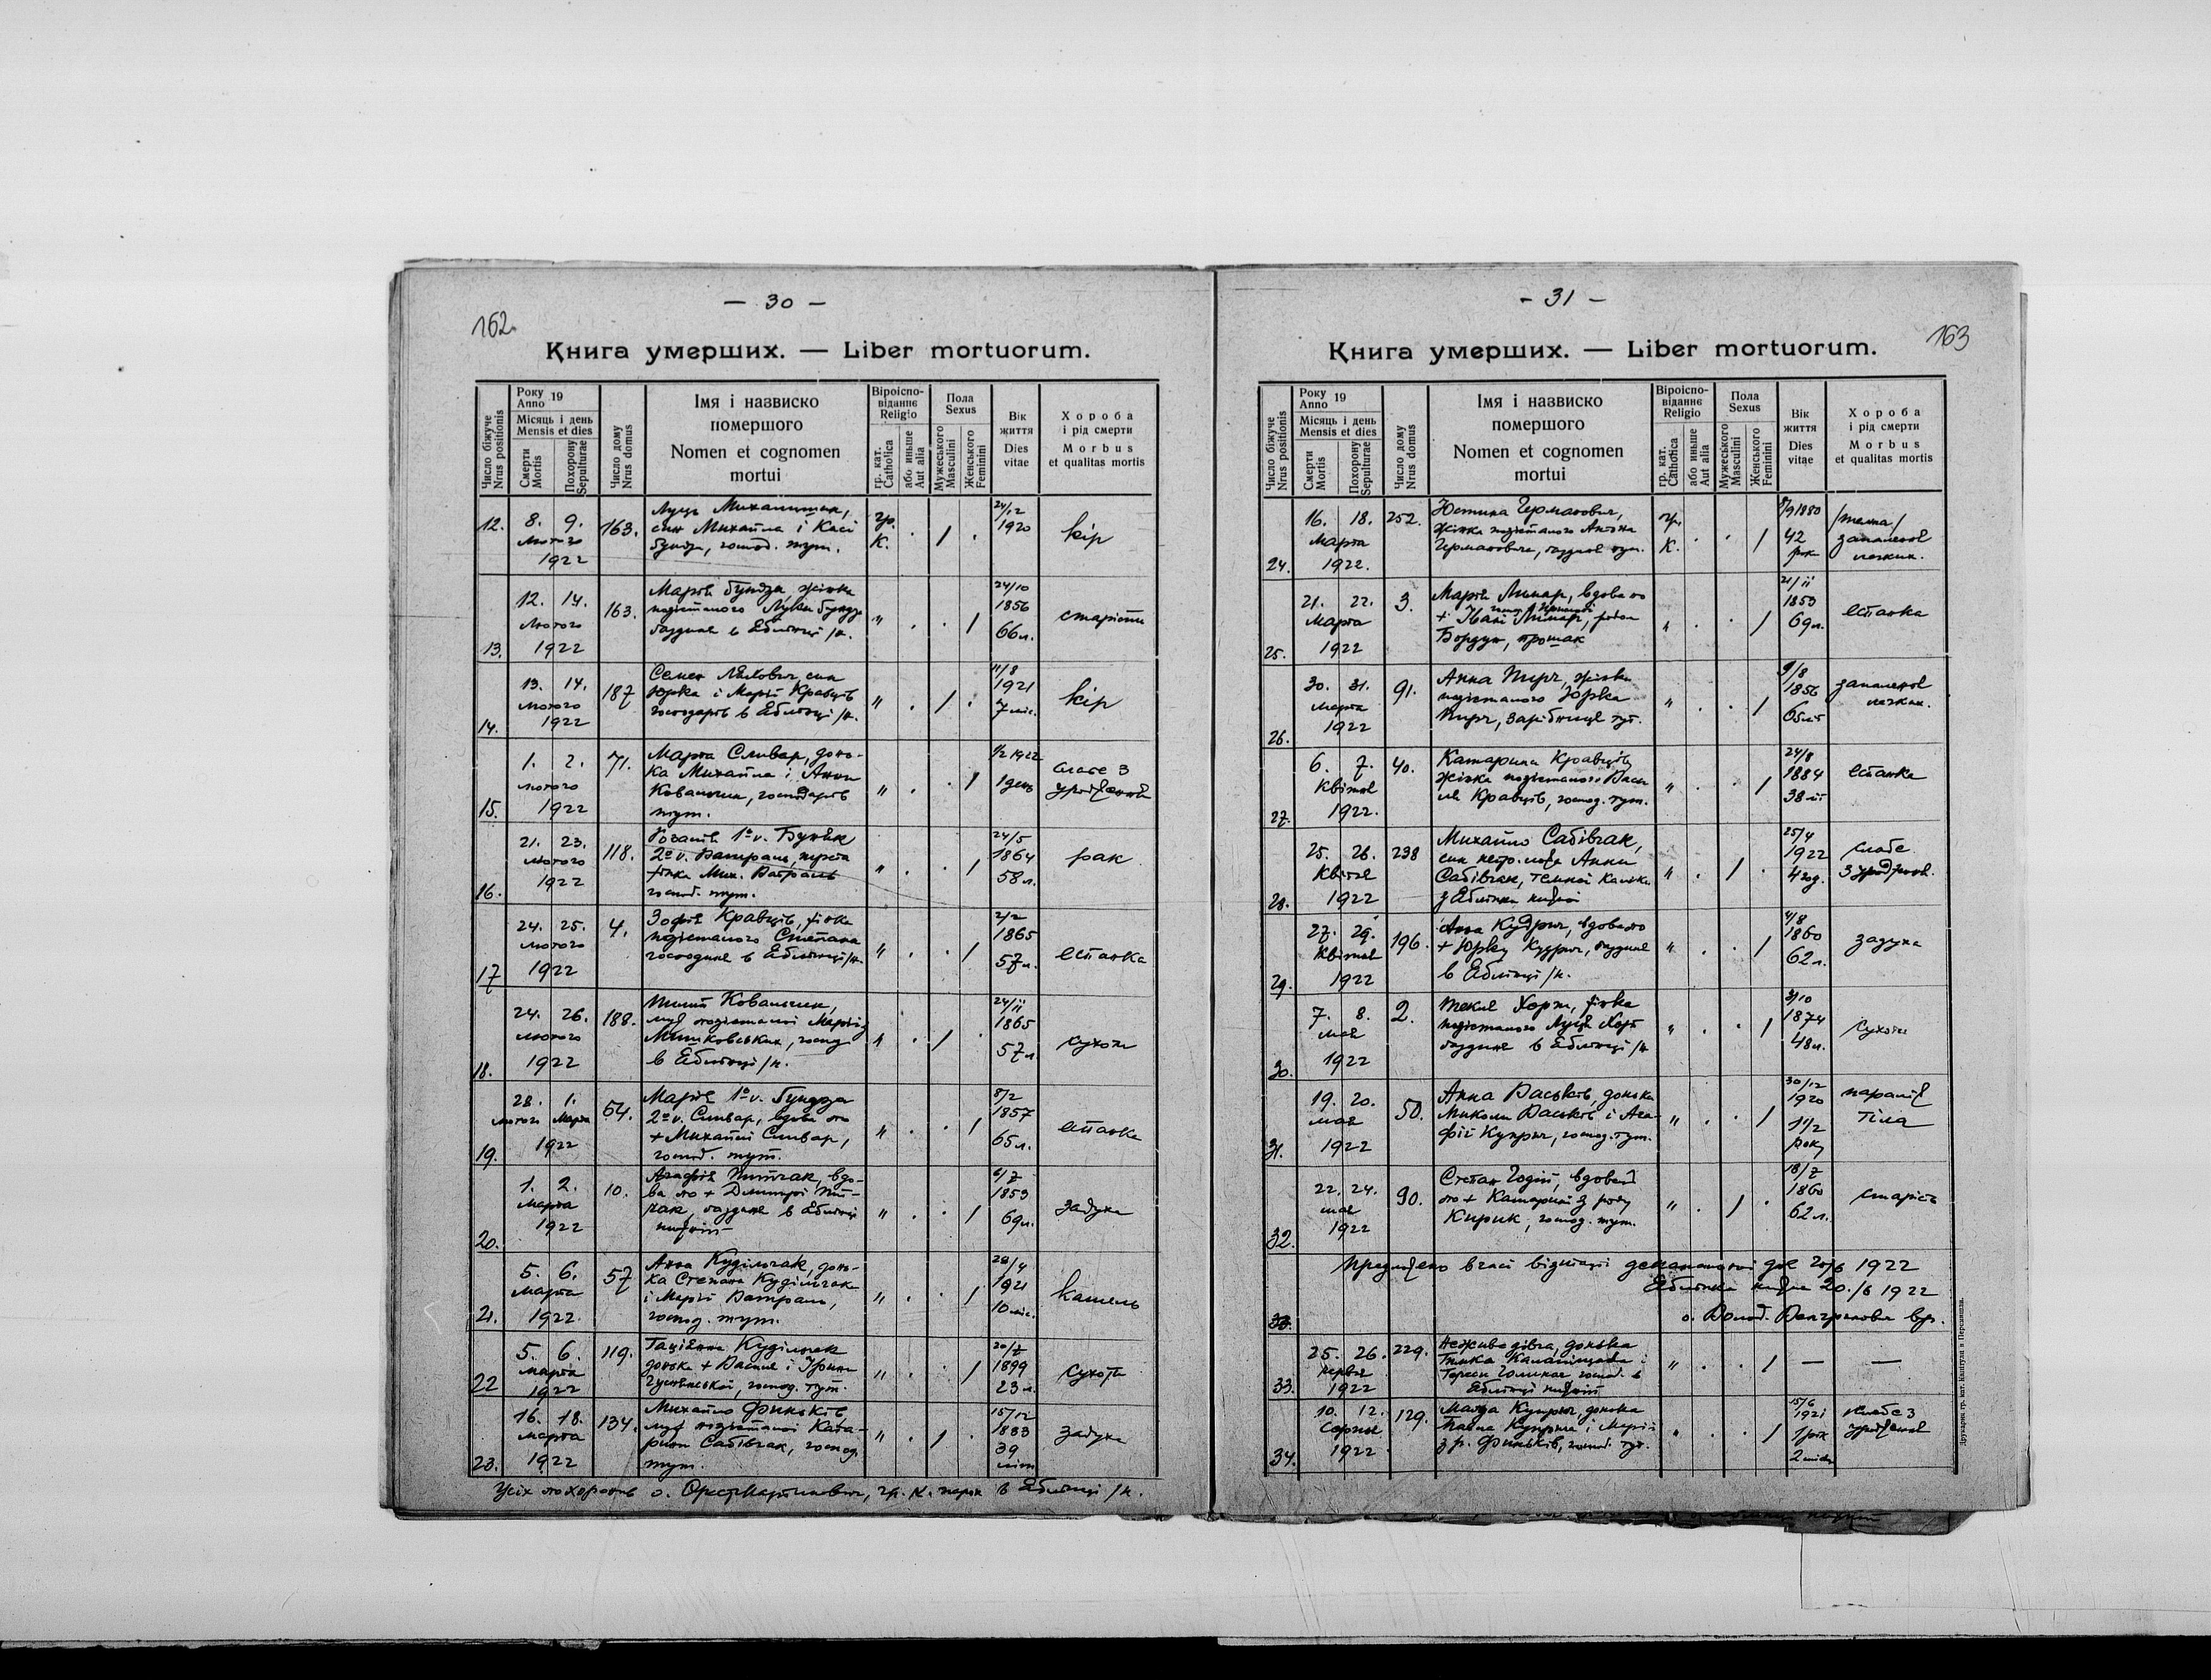 — 30 —
162.
Книга умерших. — Liber mortuorum.
Число біжуче
Nrus positionis
Року
Anno 19
Місяць і день
Mensis et dies
Смерти
Mortis
Похорону
Sepulturae
Число дому
Nrus domus
Імя і назвиско
помершого
Nomen et cognomen
mortui
Віроіспо-
віданнє
Religio
гр. кат.
Catholica
або иньше
Aut alia
Пола
Sexus
Мужеського
Masculini
Женського
Feminini
Вік
життя
Dies
vitae
Хороба
і рід смерти
Morbus
et qualitas mortis
12. 8. 9. лютого 1922 163.
син Михайла і Касі
Бундза, господ. тут.
гр. к. / 24/12 1920 кір
13. 12. 14. Лютого 1922 163.
Марія Бундза, жінка
подісталого Луки Бундза
газдиня в Яблінці /н.
" / 24/10 1856 66 л. старість
14. 13. 14. лютого 1922 187
Семен син
Юрка і Марії Кравців
господарів в Яблінці /н.
" / 11/8 1921 7 міс. кір
15. 1. 2. лютого 1922 71.
Марта Сливар, донь-
ка Михайла і Анни
Ковальчик, господарів
тут.
" / 1/2 1922 1 день слабе з уродження
16. 21. 23. лютого 1922 118.
Розалія 1º v.
2º v. Ватраль,
жінка Мих. Ватраль
господ. тут.
" / 24/5 1864 58 л. рак
17 24. 25. лютого 1922 4.
Зофія Кравців, жінка
подісталого Степана
господиня в Яблінці /н.
" / 2/2 1865 57 л. еспанка
18. 24. 26. лютого 1922 188.
Ковальчик,
муж подісталої Марії з
Мишковських, господ.
в Яблінці /н.
" / 24/11 1865 57 л сухоти
19. 28. 1. лютого Марта 1922 54.
Марія 1º v. Бундза
2º v. Сливар, вдова по
+ Михайлі Сливар,
господ. тут.
" / 8/2 1857 65 л. еспанка
20. 1. 2. Марта 1922 10.
Агафія вдо-
ва по + Дмитрі
газдиня в Яблінці
нижній
" / 6/7 1853 69 л. задуха
21. 5. 6. Марта 1922 57
Анна Кудільчак, донь-
ка Степана Кудільчак
і Марії Ватраль,
господ. тут.
" / 28/4 1921 10 міс. кашель
22 5. 6. марта 1922 119.
Таціянна Кудільчак
донька + Василя і Ірини
господ. тут.
" / 20/7 1899 23 л. Сухоти
23. 16. 18. марта 1922 134.
Михайло Финьків
муж подісталої Ката-
рини Сабівчак, господ.
тут.
" / 15/12 1883 39 літ задуха
Усіх похоронив о. Орест Мартинович, гр. к. парох в Яблінці /н.
- 31 -
163
Книга умерших. — Liber mortuorum.
Число біжуче
Nrus positionis
Року
Anno 19
Місяць і день
Mensis et dies
Смерти
Mortis
Похорону
Sepulturae
Число дому
Nrus domus
Імя і назвиско
помершого
Nomen et cognomen
mortui
Віроіспо-
віданнє
Religio
гр. кат.
Catholica
або иньше
Aut alia
Пола
Sexus
Мужеського
Masculini
Женського
Feminini
Вік
життя
Dies
vitae
Хороба
і рід смерти
Morbus
et qualitas mortis
24. 16. 18. Марта 1922. 252.
Юстина Германович,
жінка подісталого Антона
Германовича, газдиня тут.
гр. К. / 8/9 1880 42 рок запаленє легких.
25. 21. 22. Марта 1922 3.
Марія Линар, вдова по
+ Івані Линар,
" / 21/11 1853 69 л. еспанка
26. 30. 31. марта 1922 91.
Анна Пирч, жінка
подісталого Юрка
Пирч, зарібниця тут.
" / 9/8 1856 запаленє легких.
27. 6. 7. Квітня 1922. 40.
Катарина Кравців,
жінка подісталого Васи-
ля Кравців, господ. тут.
" / 24/8 1884 38 літ еспанка
28. 25. 26. Квітня 1922 238
Михайло Сабівчак,
син Анни
Сабівчак,
" / 25/4 1922 4 год. слабе з уродження.
29. 27. 29. Квітня 1922 196.
Анна Кудрич, вдова по
+ Юрку Кудрич, газдиня
в Яблінці /н.
" / 4/8 1860 62 л. задуха
30. 7. 8. мая 1922 2.
Текля Хорт, жінка
подісталого Луця Хорт
газдиня в Яблінці /н
" / 3/10 1874 48 л. сухоти
31. 19. 20. мая 1922 50.
Анна Васьків, донька
Миколи Васьків і Ага-
фії Куприч, господ. тут.
" / 30/12 1920 1 1/2 року параліж тіла
32. 22. 24. мая 1922 90.
Степан Годій, вдовець
по + Катарині з роду
Кирик, господ. тут.
" / 18/7 1860 62 л. старість
Предложено в часі візитації деканальної дня 20/6 1922
Яблінка нижна 20./6 1922
о. Волод.
33. 25. 26. червня 1922 229.
Неживе дівча, донька
Тимка і
Тереси господ. в
Яблінці нижній
" / — —
34. 10. 12. Серпня 1922 129.
Магда Куприч, донька
Павла Куприча і Марії
з р. Финьків, господ. тут.
" / 15/6 1921 1 рік 2 місяці слабе з уродження
Друкарня гр. кат. Капітули в Перемишли.